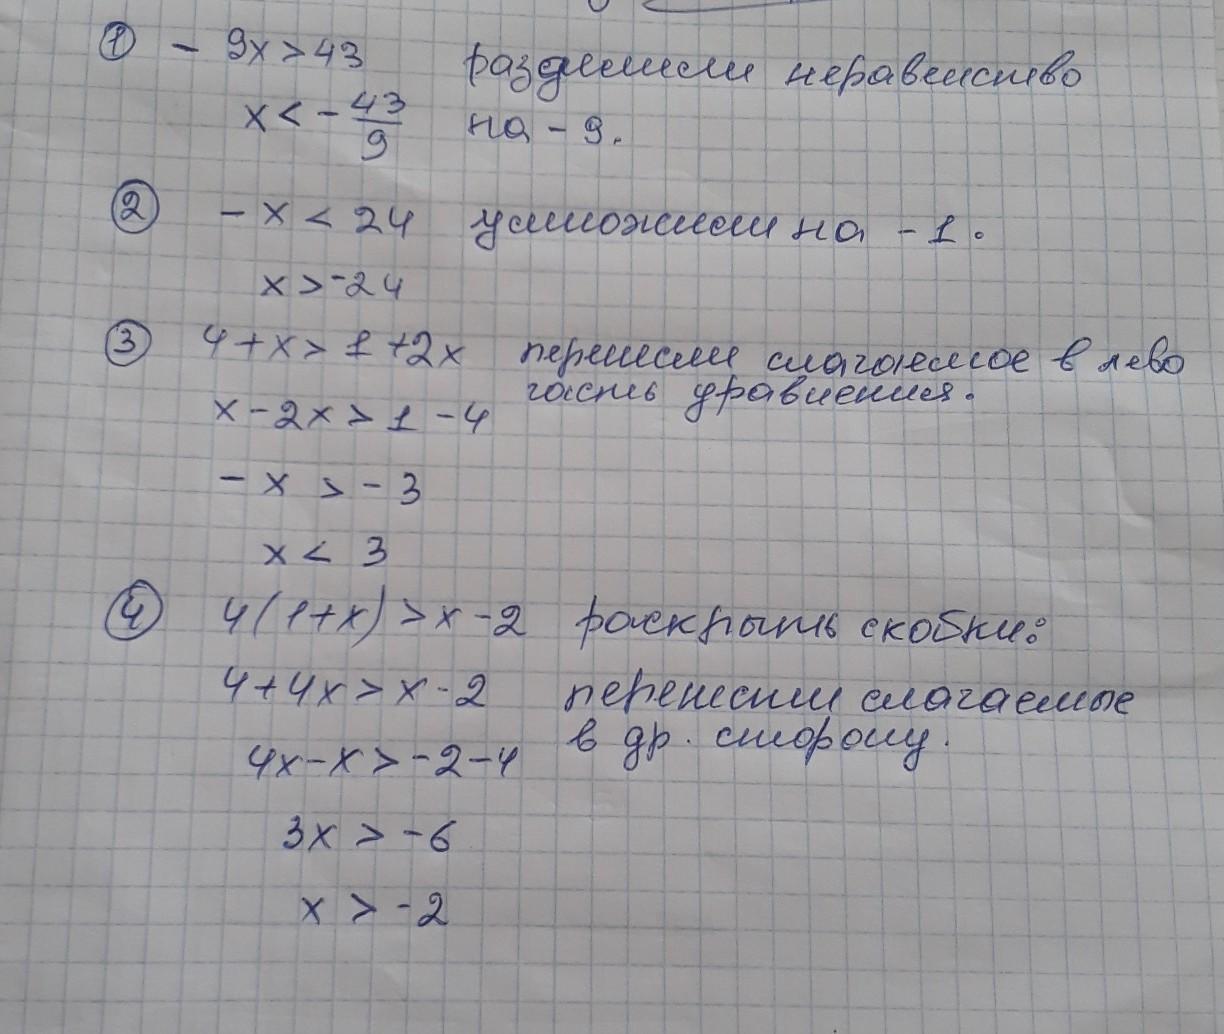 ① - 9x > 43 разделим неравенство
x < - 43/9 на - 9.
② - x < 24 умножим на - 1.
x > -24
③ 4 + x > 1 + 2x перенесем слагаемое в лево
x - 2x > 1 - 4 часть уравнения.
- x > - 3
x < 3
④ 4(1+x) > x - 2 раскрыть скобки:
4 + 4x > x - 2 перенесим слагаемые
4x - x > -2 - 4 в др. сторону.
3x > - 6
x > - 2